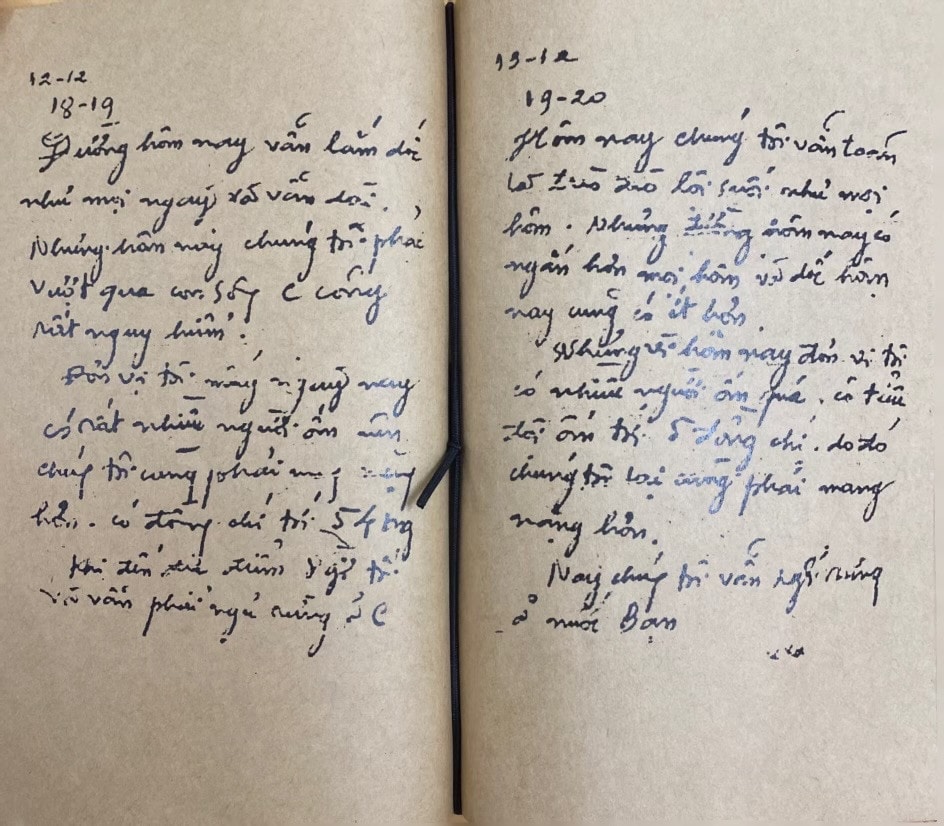 12-12
18-19
Đường hôm nay vẫn lắm dốc
như mọi ngày và vẫn dài.
Nhưng hôm nay chúng tôi phải
vượt qua con sông C công
rất nguy hiểm.
Đơn vị tôi mấy ngày nay
có rất nhiều người ốm nên
chúng tôi cũng phải mang nặng
hơn. có đồng chí tới 54 kg
Khi đến địa điểm nghỉ tôi
và vẫn phải ngủ rừng ở C
13-12
19-20
Hôm nay chúng tôi vẫn toàn
là lội suối như mọi
hôm. Nhưng đường hôm nay có
ngắn hơn mọi hôm và dốc hôm
nay cũng có ít hơn
Nhưng vì hôm nay đơn vị tôi
có nhiều người ốm quá. có tiểu
đội ốm tới 5 đồng chí. do đó
chúng tôi lại cũng phải mang
nặng hơn.
Nay chúng tôi vẫn nghỉ rừng
ở nước Bạn